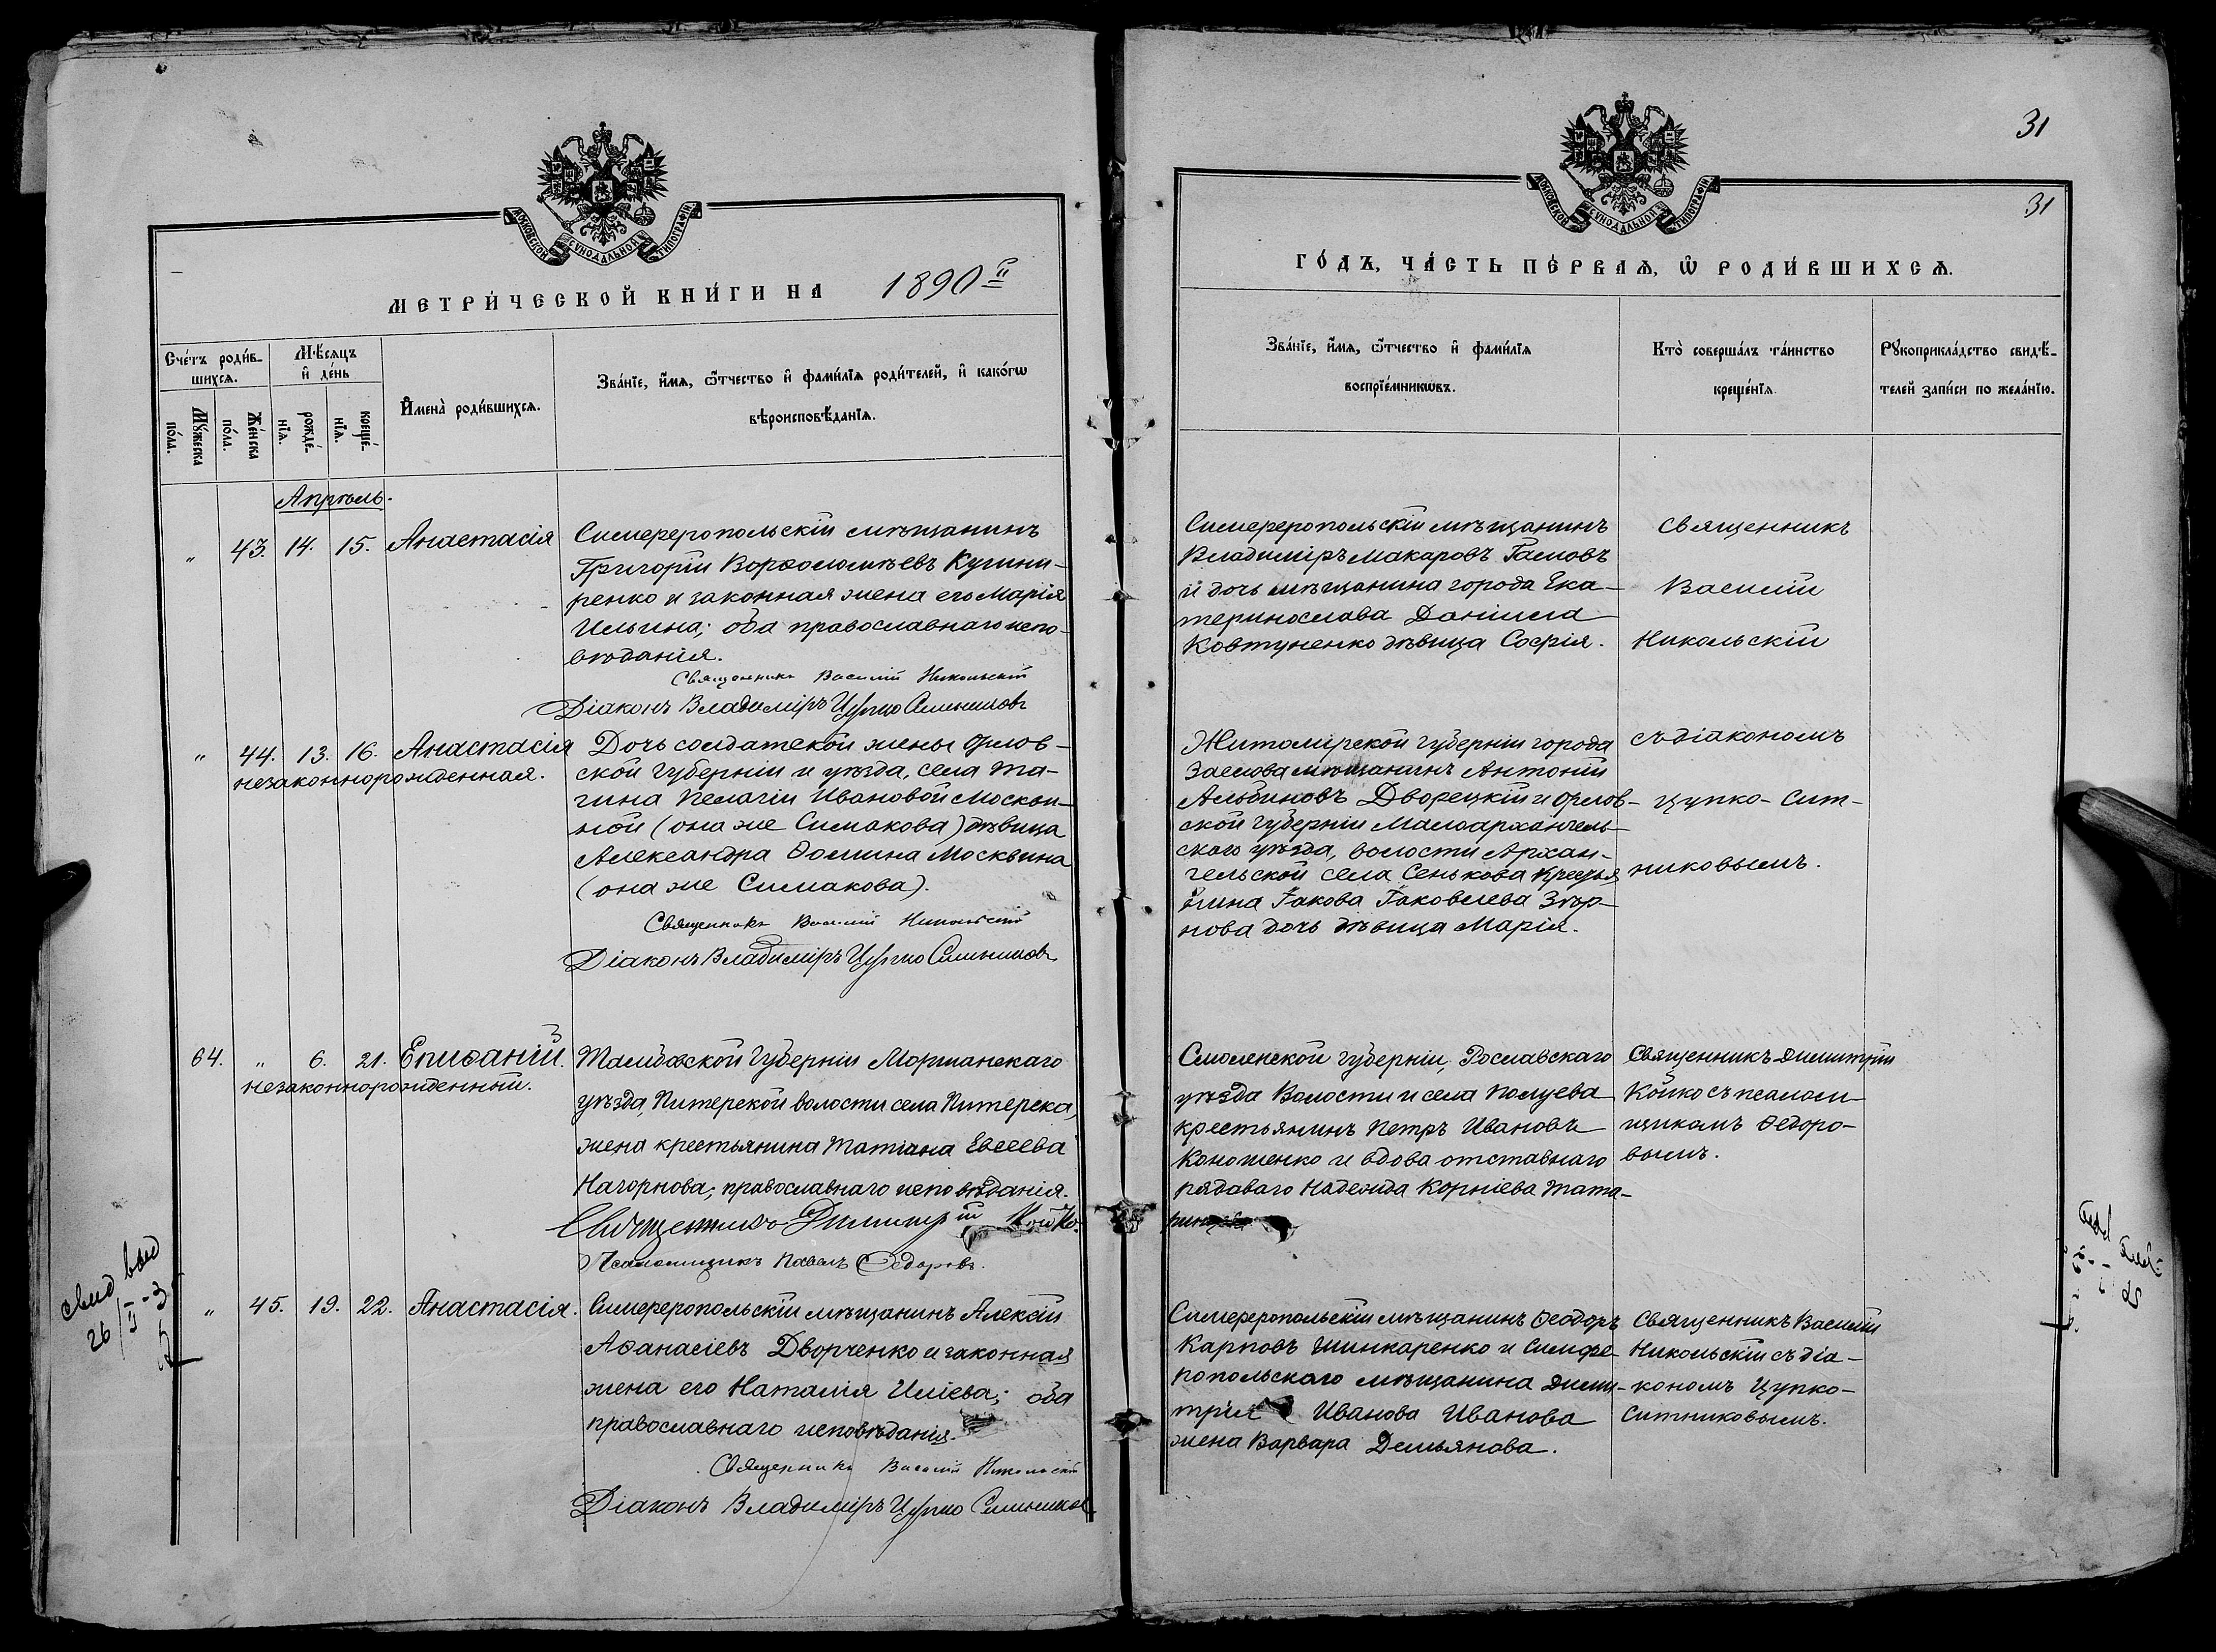 31
31
МОСКОВСКОЙ СѴНОДАЛЬНОЙ ТИПОГРАФІИ
МЕТРИ́ЧЕСКОЙ КНИ́ГИ НА 1890й
Сче́тъ роди́в-
шихсѧ.
Мѣ́сѧцъ
и҆ де́нь
Му́жеска
по́ла.
Же́нска
по́ла.
рожде́-
нїѧ.
креще́-
нїѧ.
И҆мена̀ роди́вшихсѧ.
Зва́нїе, и҆́мѧ, ѻ҆́тчество и҆ фами́лїѧ роди́телей, и҆ како́гѡ
вѣроисповѣ́данїѧ.
Апрѣль.
" 43. 14. 15. Анастасія
Симферопольскій мѣщанинъ
Григорій Варѳоломѣевъ
ренко и законная жена его Марія
Ильина; оба православнаго испо-
вѣданія.
Священникъ Василій Никольскій
Діаконъ Владиміръ Цупко Ситниковъ
" 44. 13. 16. Анастасія
незаконнорожденная.
Дочь солдатской жены Орлов-
ской губерніи и уѣзда, села Та-
гина Пелагіи Ивановой Москви-
ной (она же Симакова) дѣвица
Александра Ѳомина Москвина
(она же Симакова).
Священникъ Василій Никольскій
Діаконъ Владиміръ Цупко Ситниковъ
64. " 6. 21. Епифаній.
незаконнорожденный.
Тамбовской губерніи Моршанскаго
уѣзда, Питерской волости села Питерска,
жена крестьянина Татіана Евсеева
Нагорнова; православнаго исповѣданія.
Священникъ Димитрій Койко.
Псаломщикъ Павелъ Ѳедоровъ.
свид выд
26
" 45. 19. 22. Анастасія.
Симферопольскій мѣщанинъ Алексій
Аѳанасіевъ Дворченко и законная
жена его Наталія Иліева; оба
православнаго исповѣданія.
Священникъ Василій Никольскій
Діаконъ Владиміръ Цупко Ситниковъ
МОСКОВСКОЙ СѴНОДАЛЬНОЙ ТИПОГРАФІИ
ГО́ДЪ, ЧА́СТЬ ПЕ́РВАѦ, Ѡ҆ РОДИ́ВШИХСѦ.
Зва́нїе, и҆́мѧ, ѻ҆́тчество и҆ фами́лїѧ
воспрїе́мникѡвъ.
Кто̀ соверша́лъ та́инство
креще́нїѧ.
Рꙋкоприкла́дство свидѣ́-
телей за́писи по жела́нїю.
Симферопольскій мѣщанинъ
Владиміръ Макаровъ
и дочь мѣщанина города Ека-
теринослава Даніила
Ковтуненко дѣвица Софія.
Священникъ
Василій
Никольскій
Житомірской губерніи города
Заслова мѣщанинъ Антоній
Альбиновъ Дворецкій и Орлов-
ской губерніи Малоархангель-
скаго уѣзда, волости Архан-
гельской села Сенькова крестья
нина Іакова Іаковлева
нова дочь дѣвица Марія.
съ діакономъ
Цупко-Сит-
никовымъ.
Смоленской губерніи, Рославскаго
уѣзда Волости и села Полуева
крестьянинъ Петръ Ивановъ
Коношенко и вдова отставнаго
рядоваго Надежда Корніева Тата-
ринцева
Священникъ Димитрій
Койко съ псалом-
щикомъ Ѳедоро-
вымъ.
Симферопольскій мѣщанинъ Ѳеодоръ
Карповъ Шинкаренко и Симфе-
ропольскаго мѣщанина Дими-
трія Иванова Иванова
жена Варвара Демьянова.
Священникъ Василій
Никольскій съ діа-
кономъ Цупко-
Ситниковымъ.